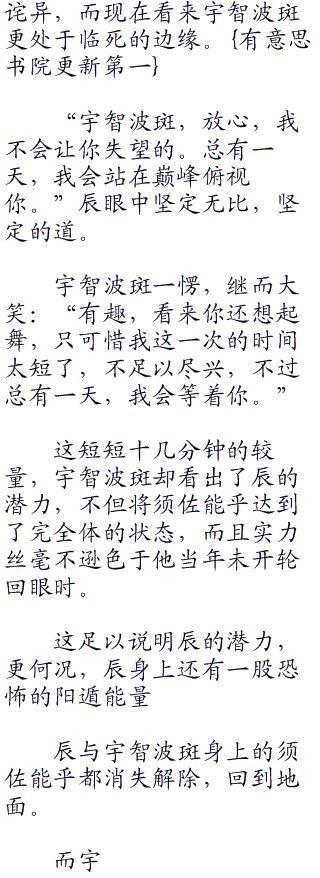 诧异，而现在看来宇智波斑
更处于临死的边缘。{有意思
书院更新第一}
“宇智波斑，放心，我
不会让你失望的。总有一
天，我会站在巅峰俯视
你。”辰眼中坚定无比，坚
定的道。
宇智波斑一愣，继而大
笑：“有趣，看来你还想起
舞，只可惜我这一次的时间
太短了，不足以尽兴，不过
总有一天，我会等着你。”
这短短十几分钟的较
量，宇智波斑却看出了辰的
潜力，不但将须佐能乎达到
了完全体的状态，而且实力
丝毫不逊色于他当年未开轮
回眼时。
这足以说明辰的潜力，
更何况，辰身上还有一股恐
怖的阳遁能量
辰与宇智波斑身上的须
佐能乎都消失解除，回到地
面。
而宇